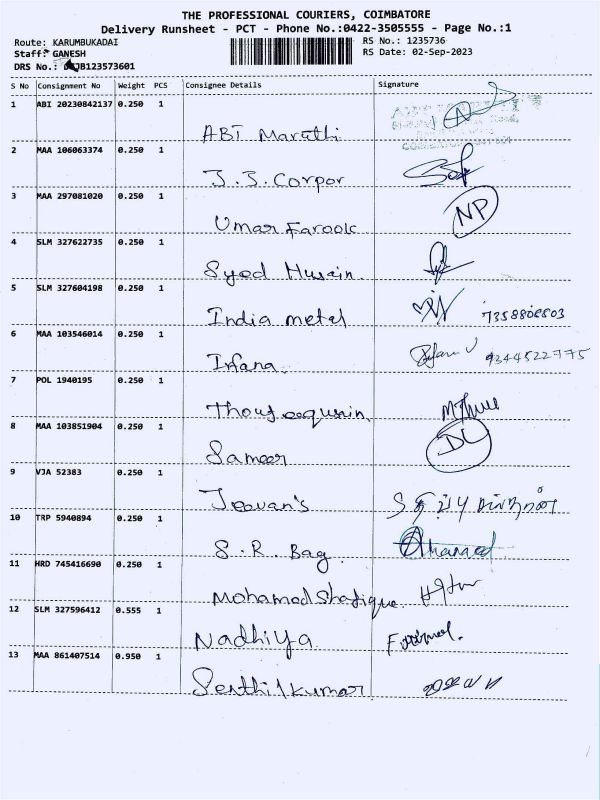 THE PROFESSIONAL COURIERS, COIMBATORE
Delivery Runsheet - PCT - Phone No.:0422-3505555 - Page No.:1
Route: KARUMBUKADAI
RS No.: 1235736
Staff: GANESH
RS Date: 02-Sep-2023
DRS No.: B123573601
S No Consignment No Weight PCS Consignee Details Signature
1 ABI 20230842137 0.250 1
ABI Maruthi
2 MAA 106063374 0.250 1
J.J.Corpor
3 MAA 297081020 0.250 1
Umar Farook NP
4 SLM 327622735 0.250 1
Syed Husain
5 SLM 327604198 0.250 1
India metal 7358808803
6 MAA 103546014 0.250 1
Irfana. 9344522775
7 POL 1940195 0.250 1
8 MAA 103851904 0.250 1
Sameer DL
9 VJA 52383 0.250 1
Jeevan's
10 TRP 5940894 0.250 1
S.R. Bag
11 HRD 745416690 0.250 1
Mohamed Shafique
12 SLM 327596412 0.555 1
Nadhiya
13 MAA 861407514 0.950 1
Senthilkumar